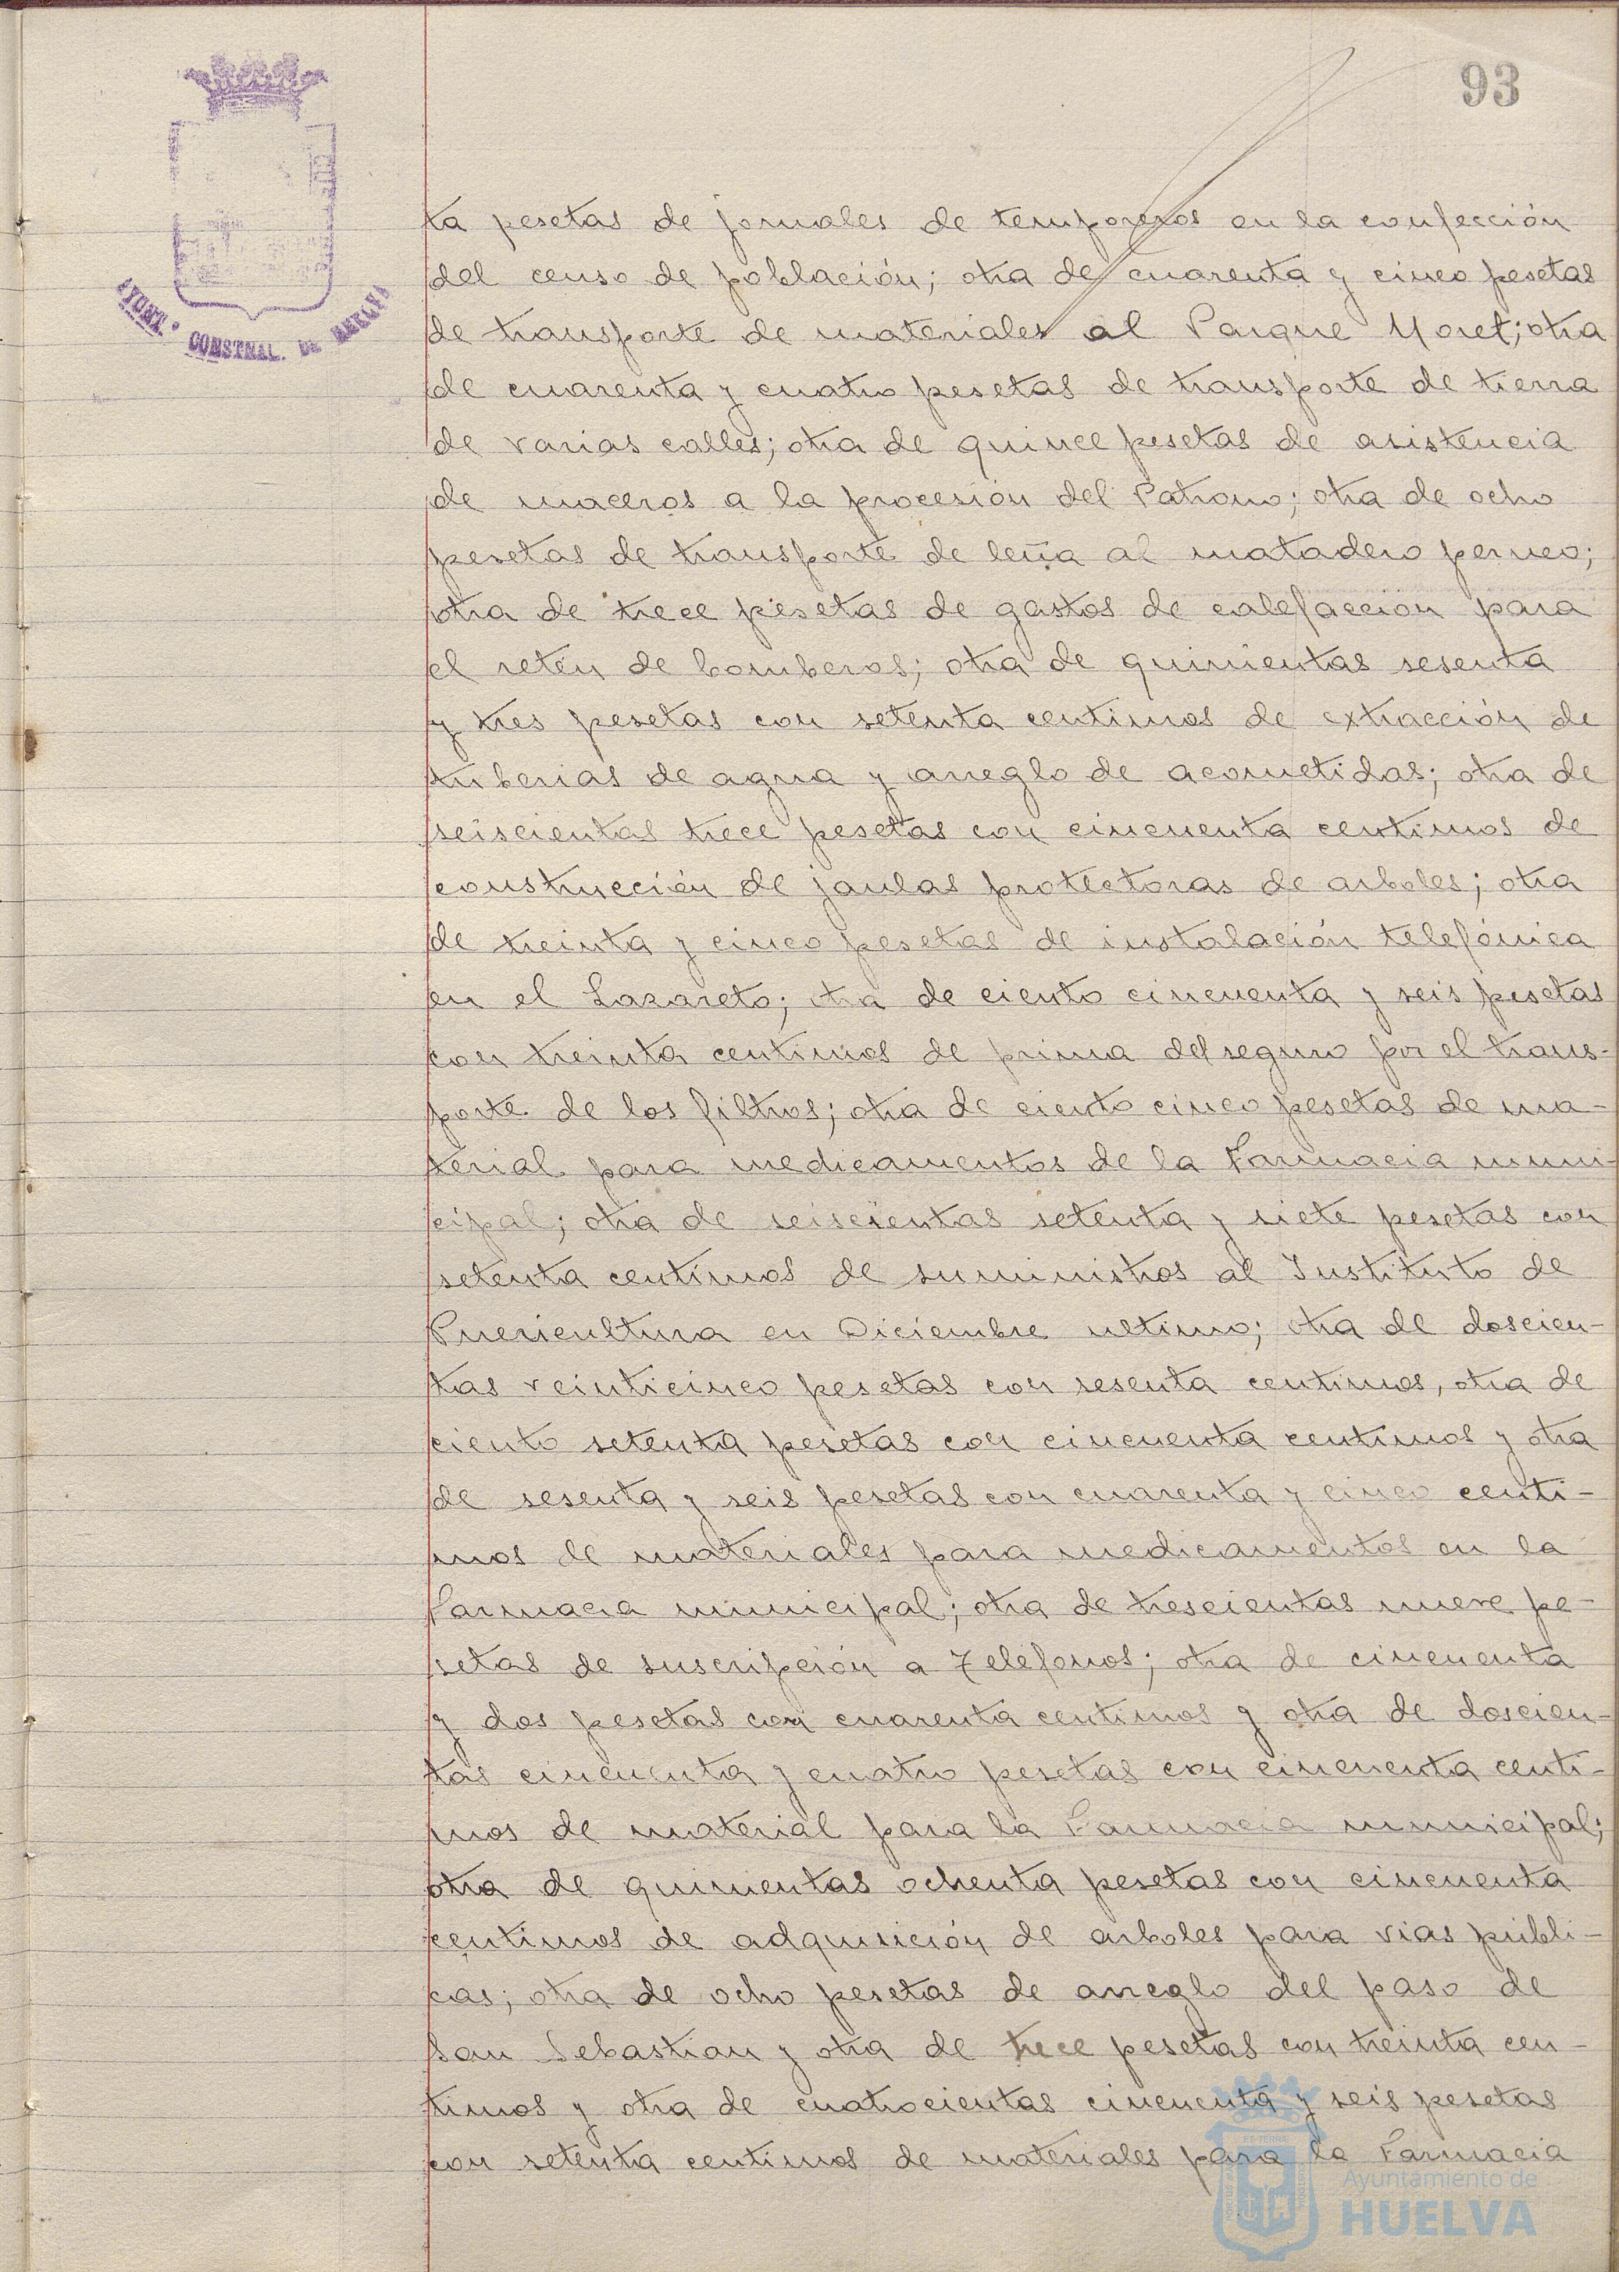 93
AYUNT.º CONSTNAL. DE HUELVA
ta pesetas de jornales de temporeros en la confección
del censo de población; otra de cuarenta y cinco pesetas
de transporte de materiales al Parque Moret; otra
de cuarenta y cuatro pesetas de transporte de tierra
de varias calles; otra de quince pesetas de asistencia
de maceros a la procesión del Patrono; otra de ocho
pesetas de transporte de leña al matadero perneo;
otra de trece pesetas de gastos de calefacción para
el retén de bomberos; otra de quinientas sesenta
y tres pesetas con setenta centimos de extracción de
tuberias de agua y arreglo de acometidas; otra de
seiscientas trece pesetas con cincuenta centimos de
construcción de jaulas protectoras de arboles; otra
de treinta y cinco pesetas de instalación telefónica
en el Lazareto; otra de ciento cincuenta y seis pesetas
con treinta centimos de prima del seguro por el trans-
porte de los filtros; otra de ciento cinco pesetas de ma-
terial para medicamentos de la Farmacia muni-
cipal; otra de seiscientas setenta y siete pesetas con
setenta centimos de suministros al Instituto de
Puericultura en Diciembre ultimo; otra de doscien-
tas veinticinco pesetas con sesenta centimos, otra de
ciento setenta pesetas con cincuenta centimos y otra
de sesenta y seis pesetas con cuarenta y cinco centi-
mos de materiales para medicamentos en la
Farmacia municipal; otra de trescientas nueve pe-
setas de suscripción a Teléfonos; otra de cincuenta
y dos pesetas con cuarenta centimos y otra de doscien-
tas cincuenta y cuatro pesetas con cincuenta centi-
mos de material para la Farmacia municipal;
otra de quinientas ochenta pesetas con cincuenta
centimos de adquisición de arboles para vias públi-
cas; otra de ocho pesetas de arreglo del paso de
San Sebastian y otra de trece pesetas con treinta cen-
timos y otra de cuatrocientas cincuenta y seis pesetas
con setenta centimos de materiales para la Farmacia
Ayuntamiento de
HUELVA